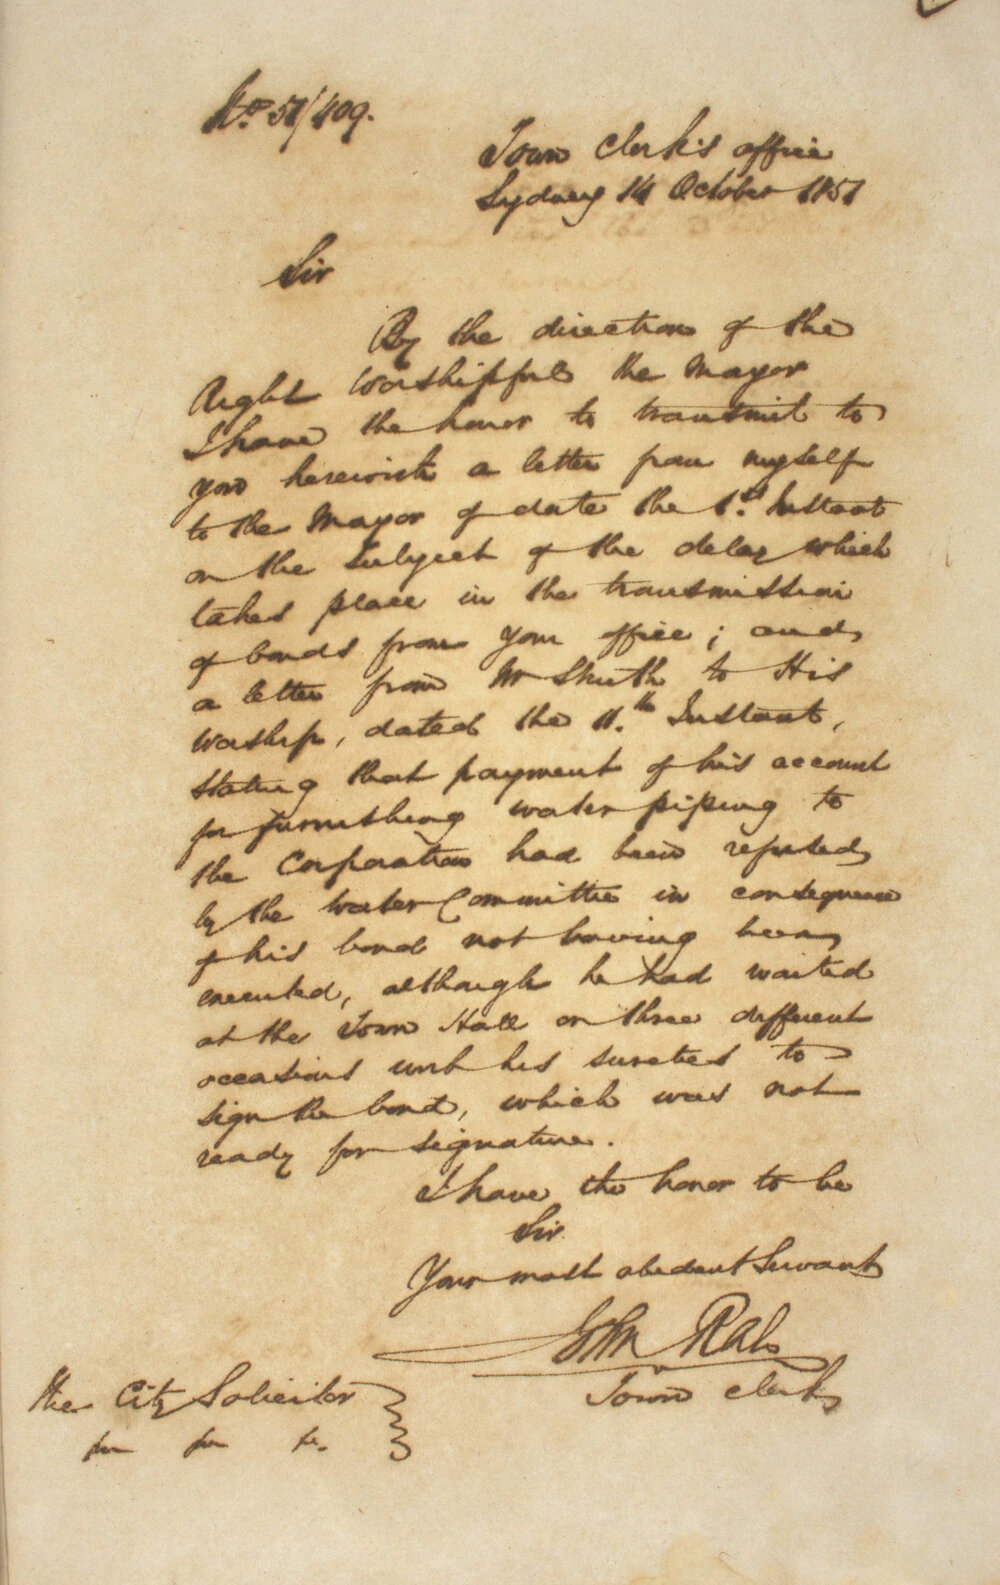 No 51/409.
Town Clerk's office
Sydney 14 October 1851
Sir
By the direction of the
Right Worshipful the Mayor
I have the honor to transmit to
you herewith a letter from myself
to the Mayor of date the 1st. Instant
on the subject of the delay which
takes place in the transmission
of bonds from your office; and
a letter from Mr to His
Worship, dated the 11.th Instant,
stating that payment of his account
for furnishing water piping to
the Corporation had been refused
by the Water Committee in consequence
of his bond not having been
executed, although he had waited
at the Town Hall on three different
occasions with his sureties to
sign the bond, which was not
ready for signature.
I have the honor to be
Sir
Your most obedient Servant
John Rae
Town Clerk
The City Solicitor